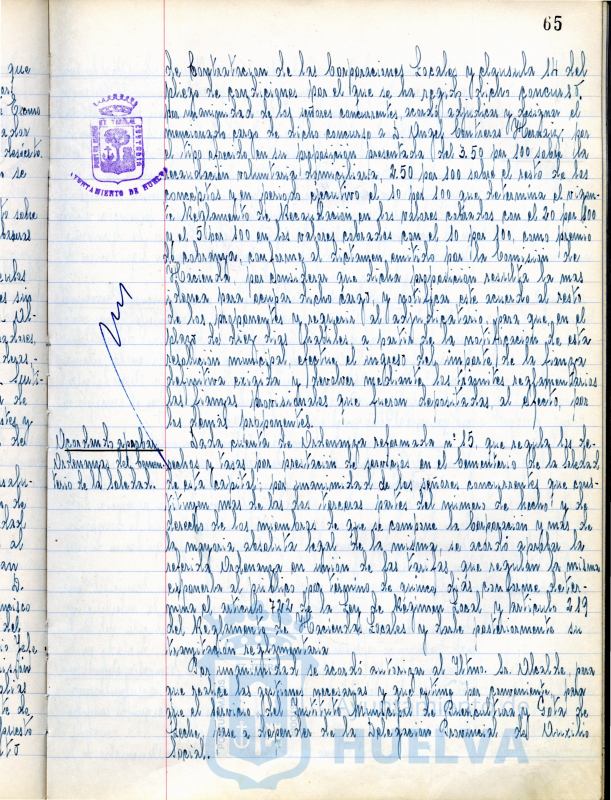 65
de Contratación de las Corporaciones Locales y cláusula 14 del
pliego de condiciones por el que se ha regido dicho concurso,
por unanimidad de los señores concurrentes, acordó adjudicar y designar el
mencionado cargo de dicho concurso a D. Angel Contreras por
el tipo ofrecido en su proposición presentada del 3,50 por 100 sobre la
recaudación voluntaria domiciliaria, 2,50 por 100 sobre el resto de los
conceptos y en período ejecutivo el 10 por 100 que determina el vigen-
te Reglamento de Recaudación en los valores cobrados con el 20 por 100
o el 5 por 100 en los valores cobrados con el 10 por 100, como premio
de cobranza, conforme al dictamen emitido por la Comisión de
Hacienda, por considerar que dicha proposición resulta la mas
idonea para ocupar dicho cargo, y notificar este acuerdo al resto
de los proponentes y requerir al adjudicatario, para que, en el
plazo de diez días hábiles a partir de la notificación de esta
resolución municipal, efectúe el ingreso del importe de la fianza
definitiva exigida y devolver mediante los trámites reglamentarios
las fianzas provisionales que fueron depositadas al efecto, por
los demás proponentes.
Acordando aprobar
Ordenanzas del Cemen-
terio de la Soledad.
Dada cuenta de Ordenanza reformada nº 15, que regula los de-
rechos y tasas por prestación de servicios en el Cementerio de la Soledad
de esta Capital; por unanimidad de los señores concurrentes que cons-
tituyen más de las dos terceras partes del número de hecho y de
derecho de los miembros de que se compone la Corporación y más de
la mayoría absoluta legal de la misma, se acordó aprobar la
referida Ordenanza en unión de las tarifas que regulan la misma
exponerla al público por término de quince días conforme deter-
mina el artículo 722 de la Ley de Régimen Local y artículo 219
del Reglamento de Haciendas Locales y darle posteriormente su
tramitación reglamentaria.
Por unanimidad se acordó autorizar al Iltmo. Sr. Alcalde para
que realice las gestiones necesarias y que estime por conveniente para
que el servicio del Instituto Municipal de Puericultura y Gota de
Leche, pase a depender de la Delegación Provincial de Auxilio
Social.
AYUNTAMIENTO DE HUELVA
Ayuntamiento de
HUELVA